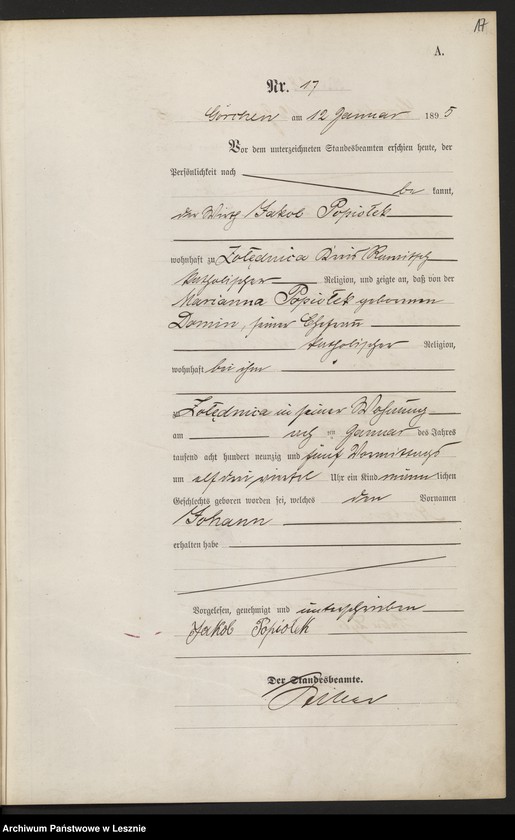 17
A.
Nr. 17
Görchen am 12 Januar 1895
Vor dem unterzeichneten Standesbeamten erschien heute, der
Persönlichkeit nach
be kannt,
der Wirth Jakob Popiołek
wohnhaft zu Zołędnica Kreis Rawitsch
katholischer Religion, und zeigte an, daß von der
Marianna Popiołek geborenen
Domin, seiner Ehefrau
katholischer Religion,
wohnhaft bei ihm
zu Zołędnica in seiner Wohnung
am ten Januar des Jahres
tausend acht hundert neunzig und fünf Vormittags
um elf drei viertel Uhr ein Kind männlichen
Geschlechts geboren worden sei, welches den Vornamen
Johann
erhalten habe
Vorgelesen, genehmigt und unterschrieben
Jakob Popiolek
Der Standesbeamte.
Archiwum Państwowe w Lesznie